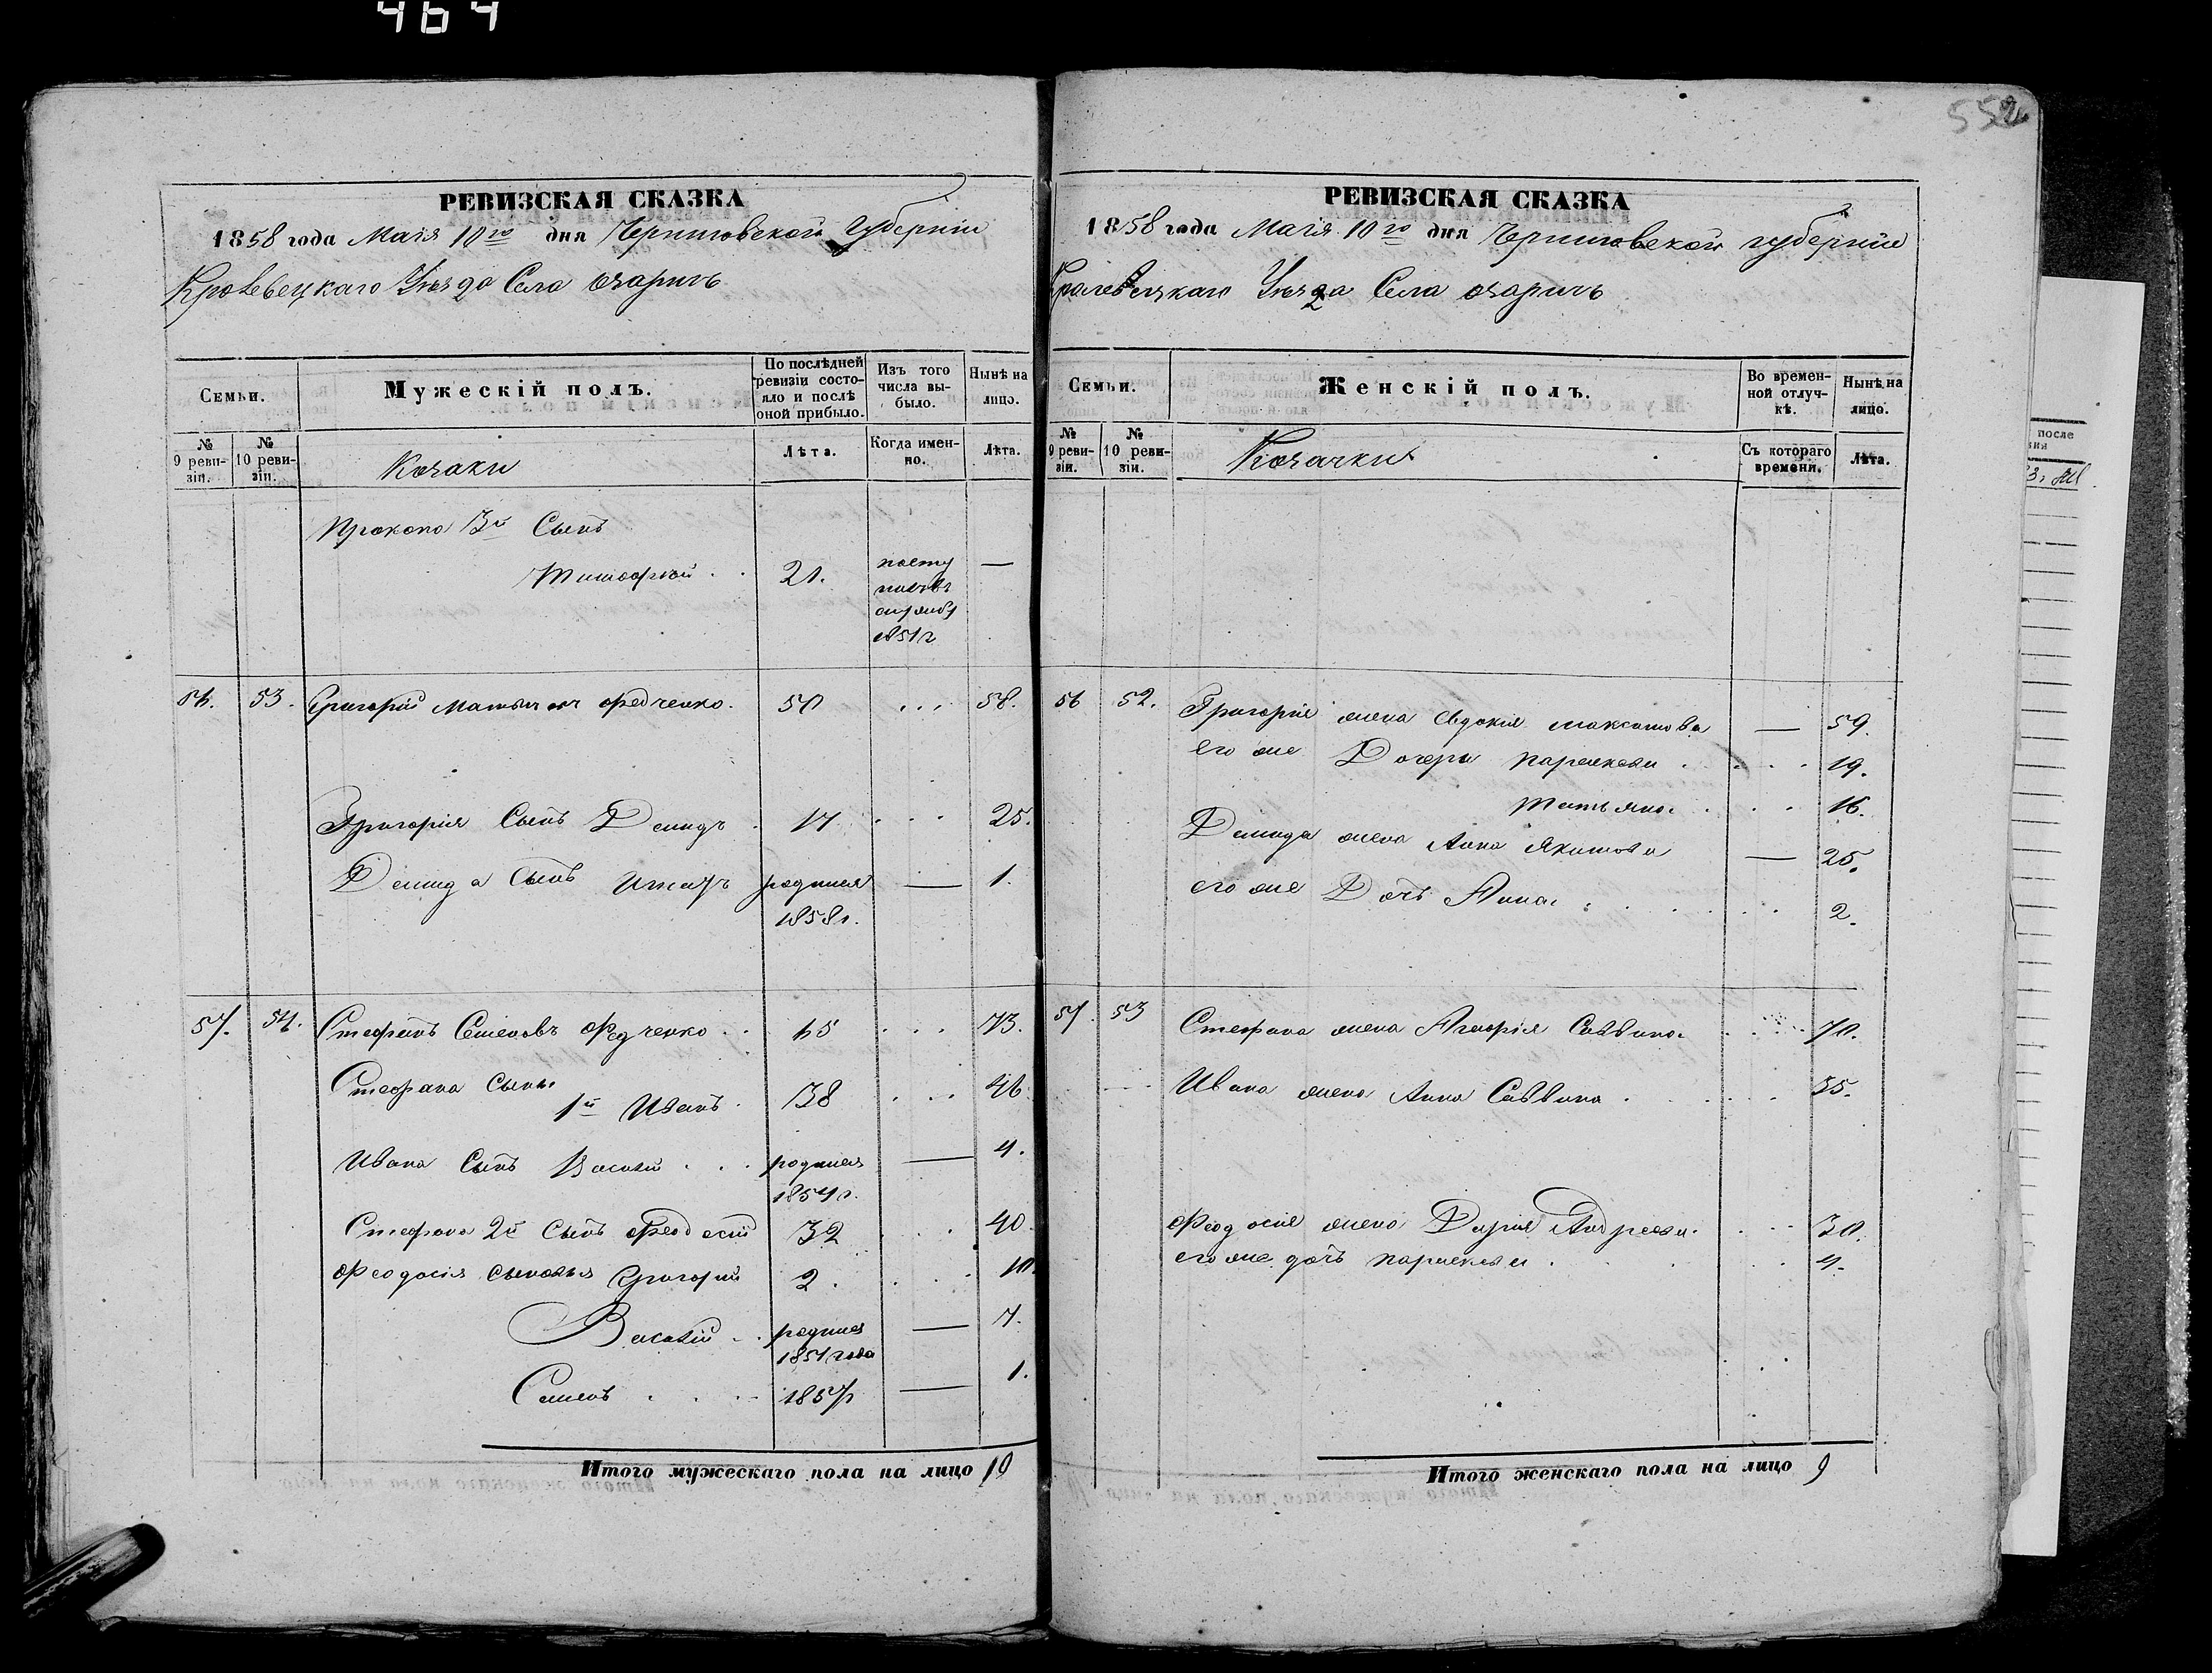 464
552
РЕВИЗСКАЯ СКАЗКА
1858 года Маія 10го дня Черниговской Губерніи
Кролевецкаго Уѣзда Села Озаричъ
Семьи.
Мужескій полъ.
По послѣдней ревизіи состояло и послѣ оной прибыло.
Изъ того числа выбыло.
Нынѣ на лицо.
№ 9 ревизіи.
№ 10 ревизіи.
Козаки
Лѣта.
Когда именно.
Лѣта.
Прокопа 3й Сынъ
Тимофей . . 21. —
1851г
56. 53. Григорій Федченко. 50 . . . 58.
Григорія Сынъ Демидъ . 17 . . . 25.
Демида Сынъ родился — 1.
1858г.
57. 54. Стефанъ Семеновъ Федченко . . 65 . . . 73.
Стефана Сыны
1й Иванъ . 38 . . . 46.
Ивана Сынъ Василій . . . родился — 4.
1854г.
Стефана 2й Сынъ Феодосій 32 . . 40.
Феодосія сыновья Григорій 2 . . . . 10.
Василій . . родился — 7.
1851 года
Семенъ . . . 1857г — 1.
Итого мужескаго пола на лицо 10
РЕВИЗСКАЯ СКАЗКА
1858 года Маія 10го дня Черниговской губерніи
Кролевецкаго Уѣзда Села Озаричъ
Семьи.
Женскій полъ.
Во временной отлучкѣ.
Нынѣ на лицо.
№ 9 ревизіи.
№ 10 ревизіи.
Козачки
Съ котораго времени.
Лѣта.
56 52. Григорія жена Евдокія Максимова — 59.
его же Дочери Параскева . . . . 19.
Татьяна . . . 16.
Демида жена Анна Якимова — 25.
его же Дочь Анна . . . . . 2.
57 53 Стефана жена Агафія Саввина . . . 70.
Ивана жена Анна Саввина . . . . 35.
Феодосія жена Дарія Андреева . . . 30.
его же дочь Параскева . . . . 4.
Итого женскаго пола на лицо 9
после